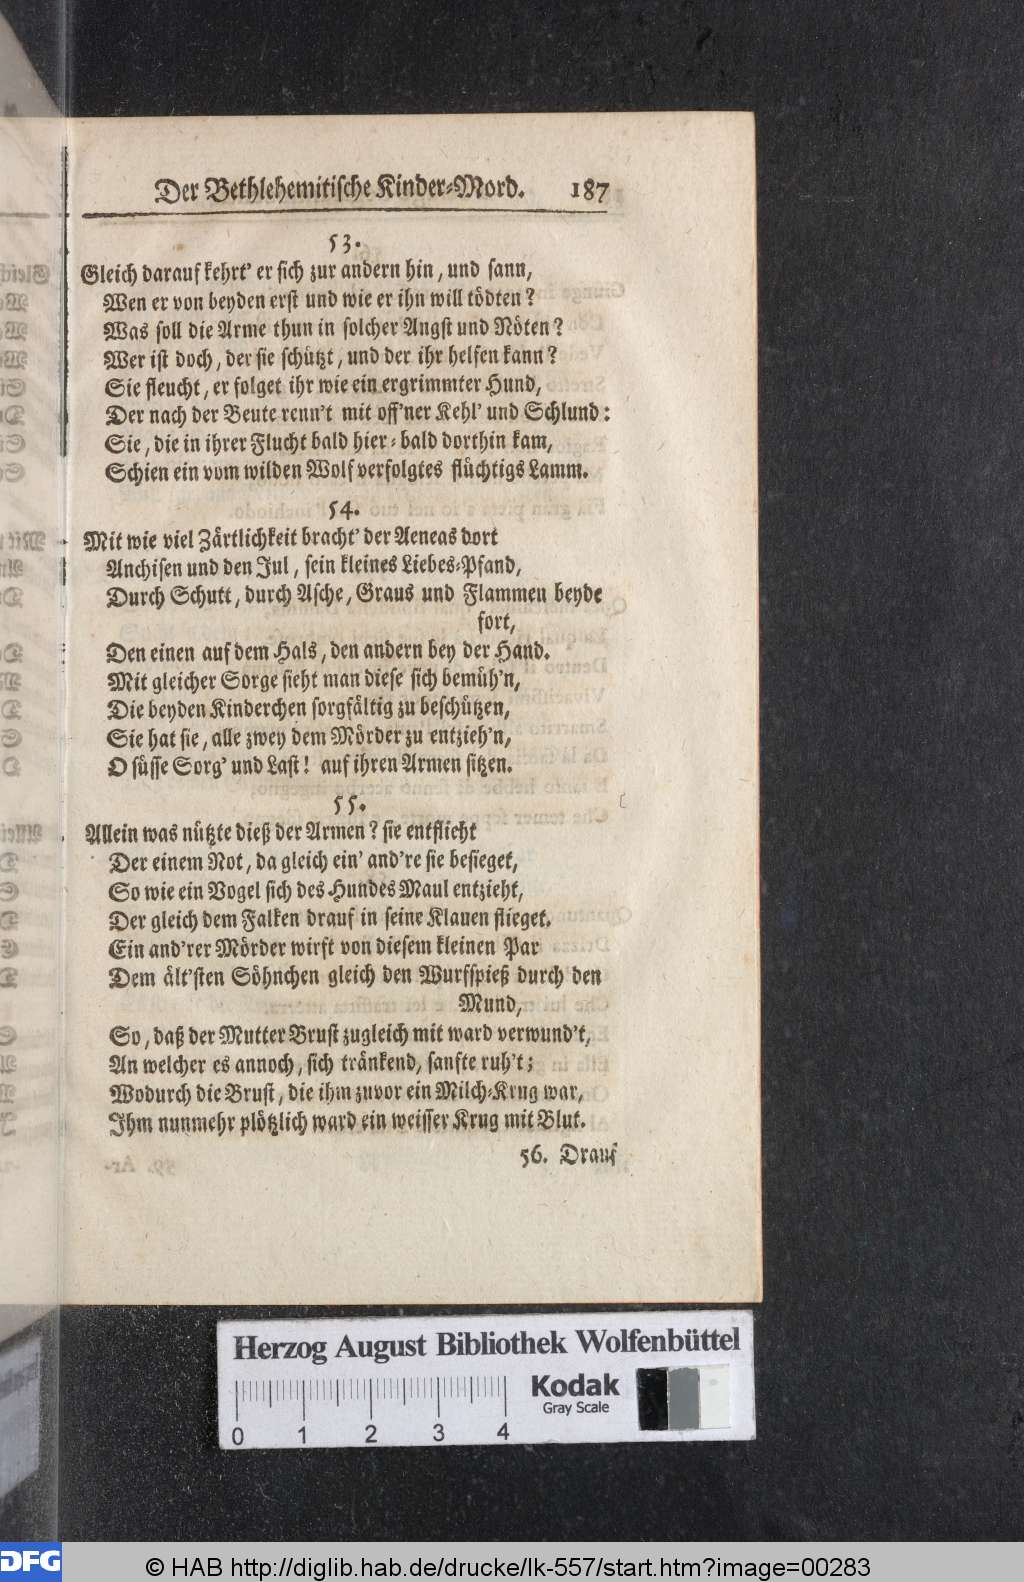 Der Bethlehemitische Kinder-Mord. 187
53.
Gleich darauf kehrt' er sich zur andern hin, und sann,
Wen er von beyden erst und wie er ihn will tödten?
Was soll die Arme thun in solcher Angst und Nöten?
Wer ist doch, der sie schützt, und der ihr helfen kann?
Sie fleucht, er folget ihr wie ein ergrimmter Hund,
Der nach der Beute renn't mit off'ner Kehl' und Schlund:
Sie, die in ihrer Flucht bald hier- bald dorthin kam,
Schien ein vom wilden Wolf verfolgtes flüchtigs Lamm.
54.
Mit wie viel Zärtlichkeit bracht' der Aeneas dort
Anchisen und den Jul, sein kleines Liebes-Pfand,
Durch Schutt, durch Asche, Graus und Flammen beyde
fort,
Den einen auf dem Hals, den andern bey der Hand.
Mit gleicher Sorge sieht man diese sich bemüh'n,
Die beyden Kinderchen sorgfältig zu beschützen,
Sie hat sie, alle zwey dem Mörder zu entzieh'n,
O süsse Sorg' und Last! auf ihren Armen sitzen.
55.
Allein was nützte dieß der Armen? sie entflieht
Der einem Not, da gleich ein' and're sie besieget,
So wie ein Vogel sich des Hundes Maul entzieht,
Der gleich dem Falken drauf in seine Klauen flieget.
Ein and'rer Mörder wirft von diesem kleinen Par
Dem ält'sten Söhnchen gleich den Wurfspieß durch den
Mund,
So, daß der Mutter Brust zugleich mit ward verwund't,
An welcher es annoch, sich tränkend, sanfte ruh't;
Wodurch die Brust, die ihm zuvor ein Milch-Krug war,
Ihm nunmehr plötzlich ward ein weisser Krug mit Blut.
56. Drauf
Herzog August Bibliothek Wolfenbüttel
Kodak
Gray Scale
0 1 2 3 4
DFG
© HAB http://diglib.hab.de/drucke/lk-557/start.htm?image=00283